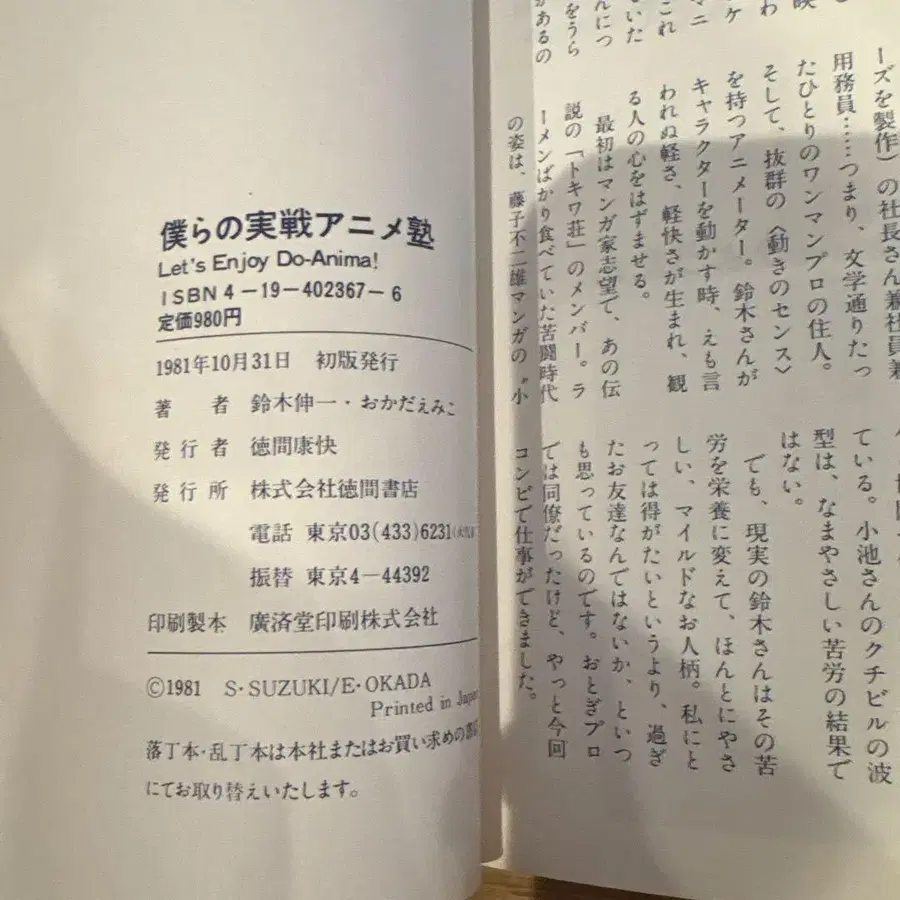 僕らの実戦アニメ塾
Let's Enjoy Do-Anima!
ISBN 4-19-402367-6
定価980円
1981年10月31日 初版発行
著者 鈴木伸一・おかだえみこ
発行者 徳間康快
発行所 株式会社徳間書店
電話 東京03(433)6231
振替 東京4-44392
印刷製本 廣済堂印刷株式会社
©1981 S・SUZUKI/E・OKADA
Printed in Japan
落丁本・乱丁本は本社またはお買い求めの書店
にてお取り替えいたします。
ケ
マニ
これ
いた
んにつ
をうら
があるの
ーズを製作）の社長さん兼社員兼
用務員……つまり、文学通りたっ
たひとりのワンマンプロの住人。
そして、抜群の〈動きのセンス〉
を持つアニメーター。鈴木さんが
キャラクターを動かす時、えも言
われぬ軽さ、軽快さが生まれ、観
る人の心をはずませる。
最初はマンガ家志望で、あの伝
説の「トキワ荘」のメンバー。ラ
ーメンばかり食べていた苦闘時代
の姿は、藤子不二雄マンガの〝小
ている。小池さんのクチビルの波
型は、なまやさしい苦労の結果で
はない。
でも、現実の鈴木さんはその苦
労を栄養に変えて、ほんとにやさ
しい、マイルドなお人柄。私にと
っては得がたいというより、過ぎ
たお友達なんではないか、といつ
も思っているのです。おとぎプロ
では同僚だったけど、やっと今回
コンビで仕事ができました。